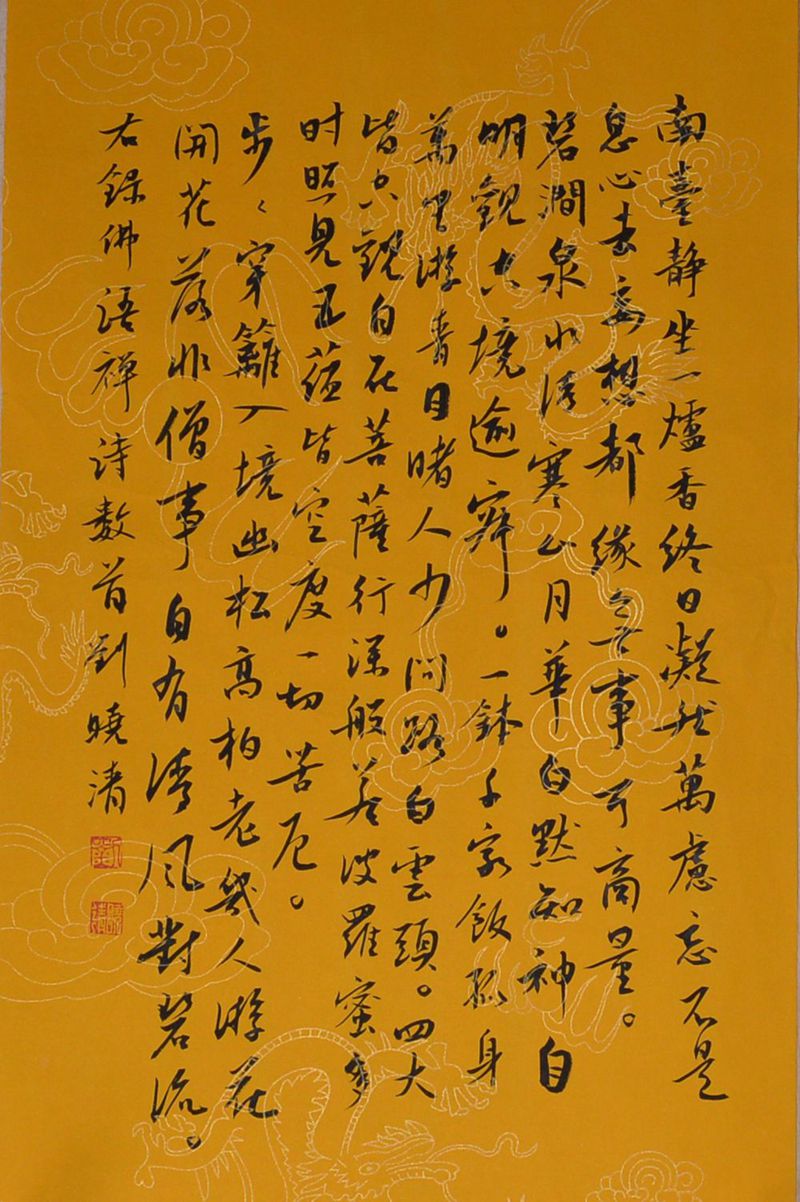 南臺静坐一爐香终日凝然萬慮忘不是
息心去妄想都缘無事可商量。
碧澗泉水清寒山月華白默知神自
明觀空境逾寂。一鉢千家飯孤身
萬里游青目睹人少问路白雲頭。四大
皆空觀自在菩薩行深般若波羅蜜多
时照見五蕴皆空度一切苦厄。
步々穿籬入境幽松高柏老幾人游花
開花落非僧事自有清风對碧流。
右録佛语禪诗数首劉曉清